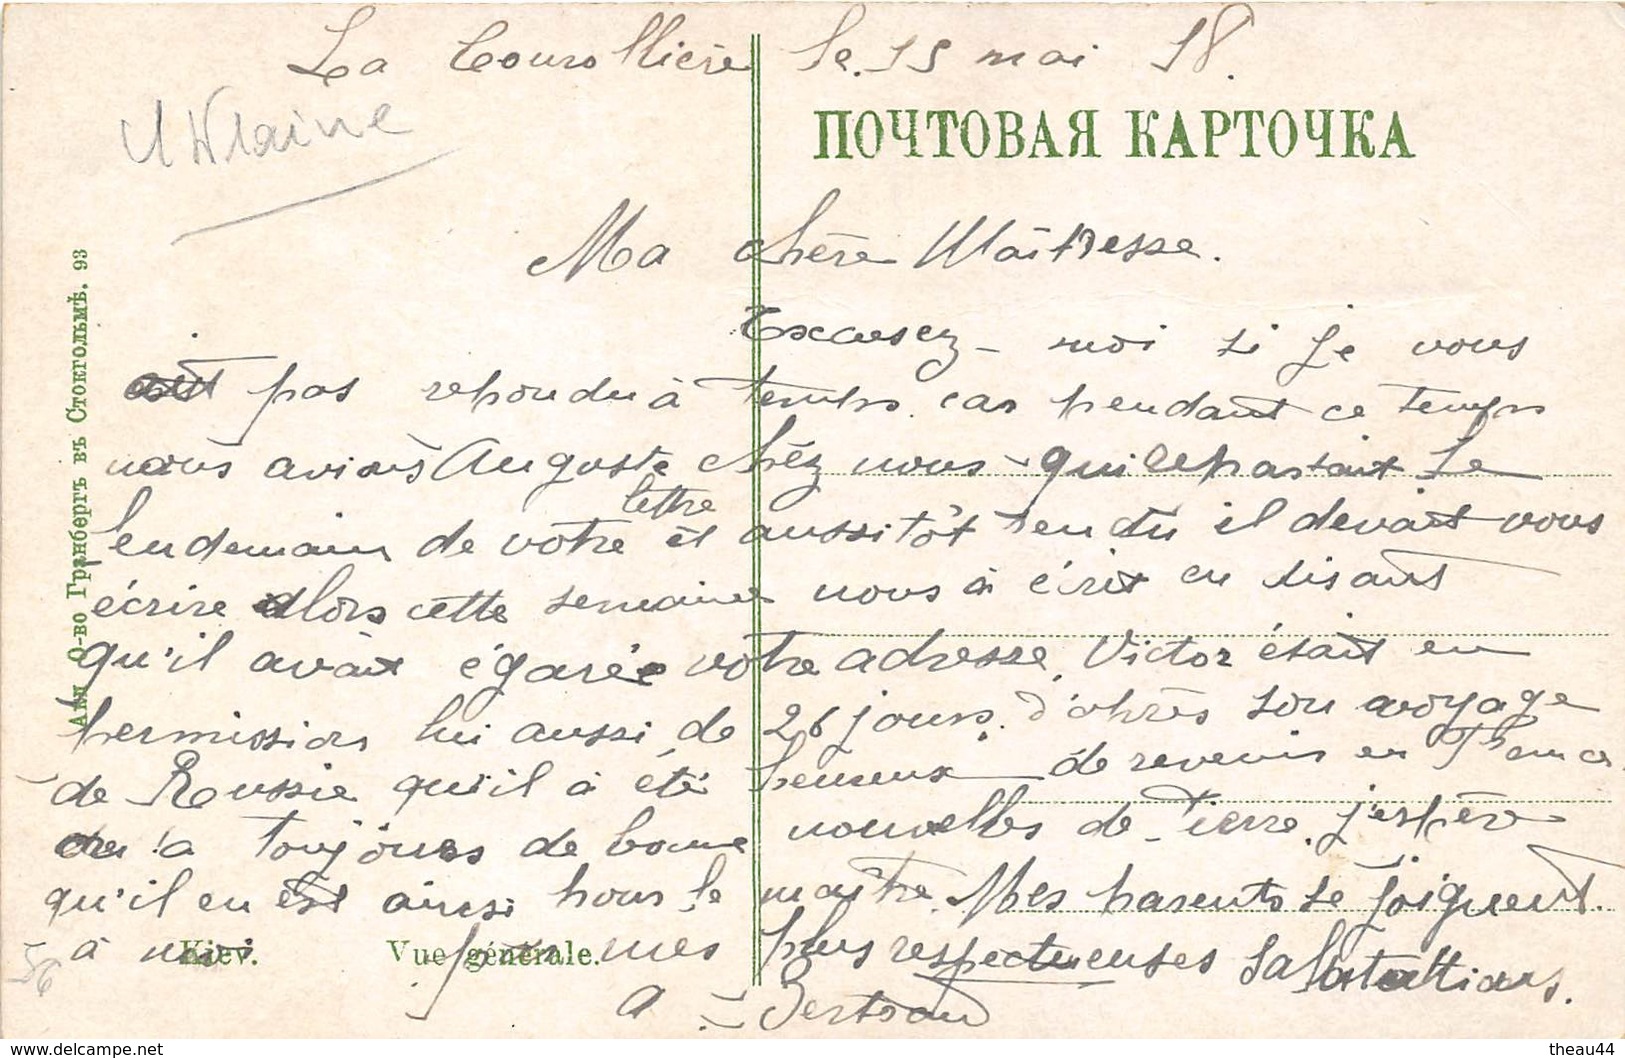 La Courollière le 15 mai 18.
Ukraine
ПОЧТОВАЯ КАРТОЧКА
Ma chère Maîtresse.
Excusez-moi si je vous
ait pas repondu à temps. car pendant ce temps
nous avions Auguste chêz nous qui repartait le
lendemain de votre lettre et aussitôt rendu il devait vous
écrire alors cette semaine nous à écrit en disant
qu'il avait égarée votre adresse. Victor était en
permission lui aussi de 26 jours. d'après son voyage
de Roussie qu'il à été heureux de revenir en France
on a toujours de bonne nouvelles de Pierre. j'espère
qu'il en est ainsi pour le maître. Mes parents se joignent
à moi pour mes plus respectueuses Salutations.
A. Bertrand
Акц. О-во Гранбергъ въ Стокгольмѣ. 93
Kiev. Vue générale.
56
theau44